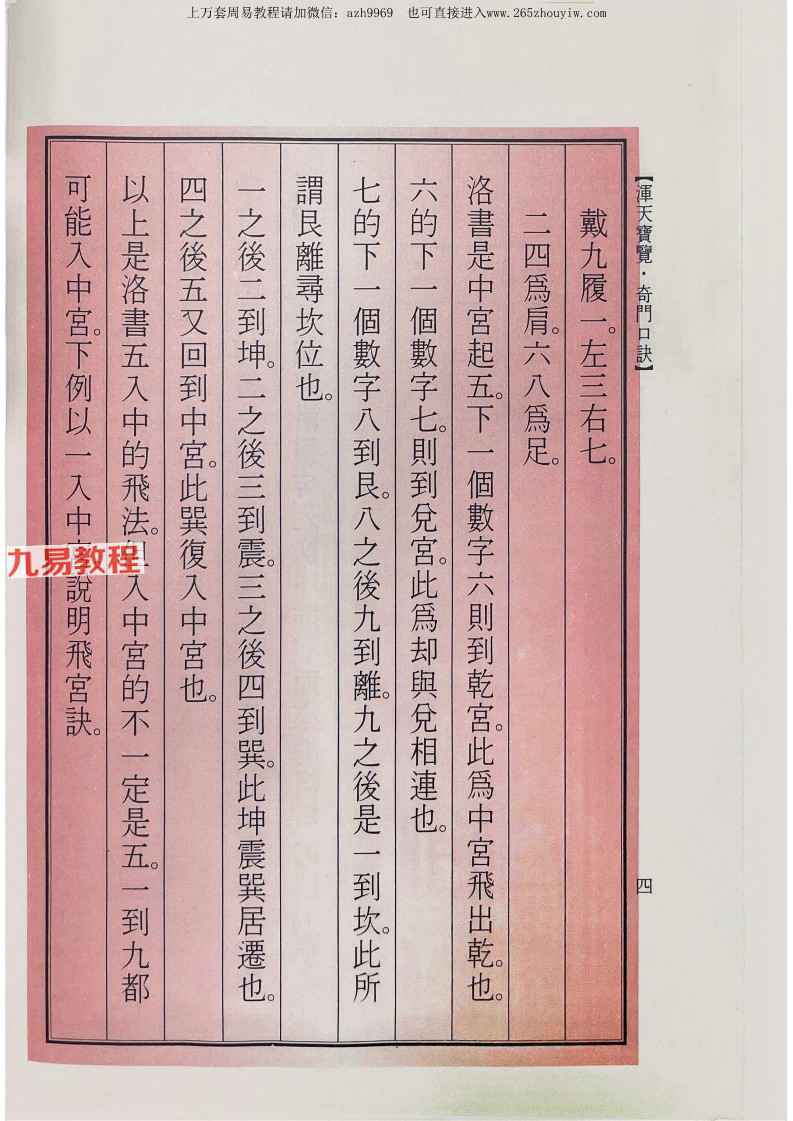 上万套周易教程请加微信：azh9969 也可直接进入www.265zhouyiw.com
【渾天寶覽·奇門口訣】
四
戴九履一。左三右七。
二四爲肩。六八爲足。
洛書是中宮起五。下一個數字六則到乾宮。此爲中宮飛出乾。也。
六的下一個數字七。則到兌宮。此爲却與兌相連也。
七的下一個數字八到艮。八之後九到離。九之後是一到坎。此所
謂艮離尋坎位也。
一之後二到坤。二之後三到震。三之後四到巽。此坤震巽居遷也。
四之後五又回到中宮。此巽復入中宮也。
以上是洛書五入中的飛法。入中宮的不一定是五。一到九都
可能入中宮。下例以一入中說明飛宮訣。
九易教程